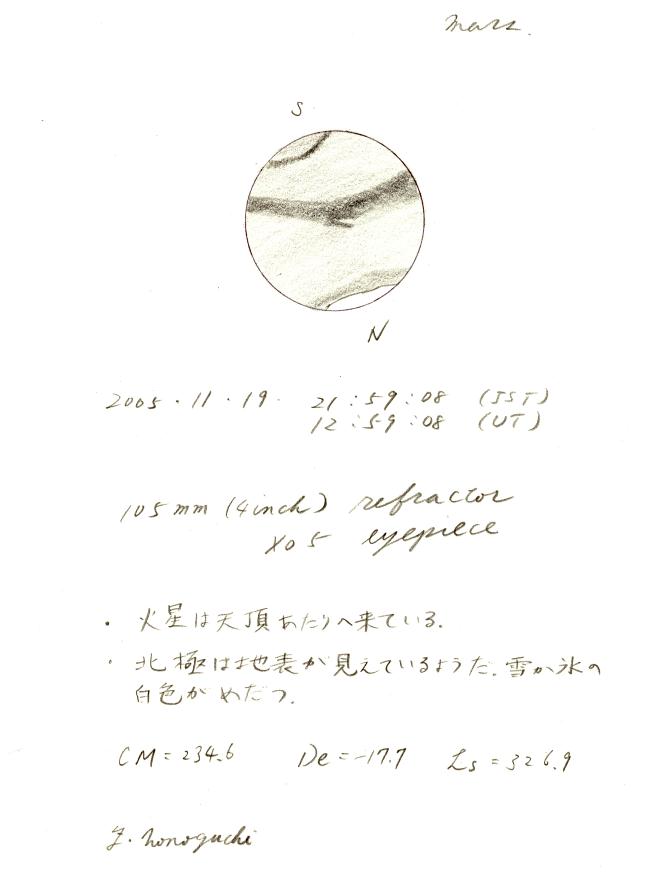 Mars.
S
N
2005・11・19 21:59:08 (JST)
12:59:08 (UT)
105mm (4inch) refractor
XO5 eyepiece
・火星は天頂あたりへ来ている.
・北極は地表が見えているようだ.雪か氷の
白色がめだつ.
CM=234.6 De=-17.7 Ls=326.9